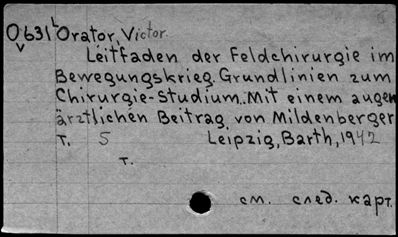 O631 Orator, Victor.
Leitfaden der Feldchirurgie im
Bewegungskrieg. Grundlinien zum
Chirurgie-Studium. Mit einem augen
ärztlichen Beitrag von Mildenberger
т. 5 Leipzig, Barth, 1942
т.
см. след. карт.